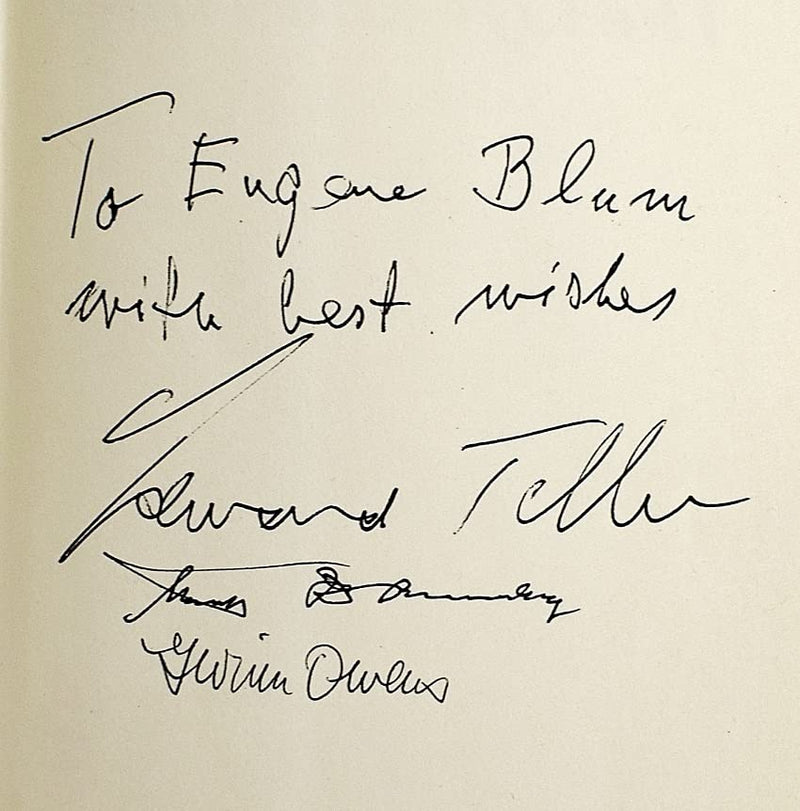 To Eugene Blum
with best wishes
Edward Teller
Owens